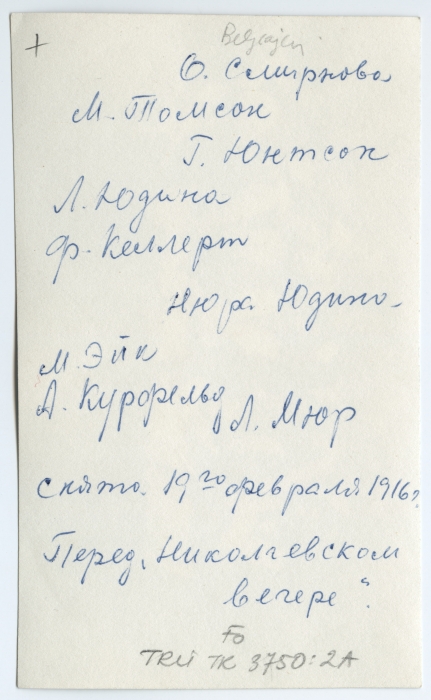 +
О. Смирнова
М. Томсон
Г. Юнтсон
Л. Юдина
Ф. Келлерт
Нюра Юдина
М. Эйк
А. Курфельд
Л. Мюр
снято 19го февраля 1916г.
Перед „Николаевском
вечере“.
Fo
TRÜ TK 3750:2A